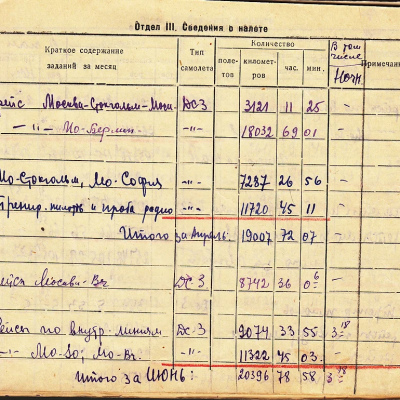 Отдел III. Сведения о налете
Краткое содержание заданий за месяц Тип самолета Количество В том числе Примечани
поле-тов километ-ров час. мин. Ночн.
ейс Москва-Стокгольм-Моск. ДС-3 3121 11 25 -
-"- Мо-Берлин. -"- 18032 69 01 -
Мо-Стокгольм, Мо-София -"- 7287 26 56 -
Тренир. и проба радио -"- 11720 45 11 -
Итого за Апрель: 19007 72 07
ейсы Москва-Вч ДС-3 8742 36 06 -
Рейсы по внутр. линиям ДС-3 9074 33 55 3 18
-"- Мо- Мо-Вч. -"- 11322 45 03 -
Итого за ИЮНЬ: 20396 78 58 3 18